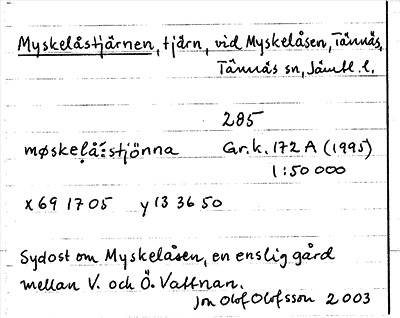 Myskelåstjärnen, tjärn, vid Myskelåsen, Tännäs,
Tännäs sn, Jämtl. l.
285
møskelå:stjönna Gr.k. 172 A (1995)
1:50 000
x 69 17 05 y 13 36 50
Sydost om Myskelåsen, en enslig gård
mellan V. och Ö. Vattnan.
Jon Olof Olofsson 2003